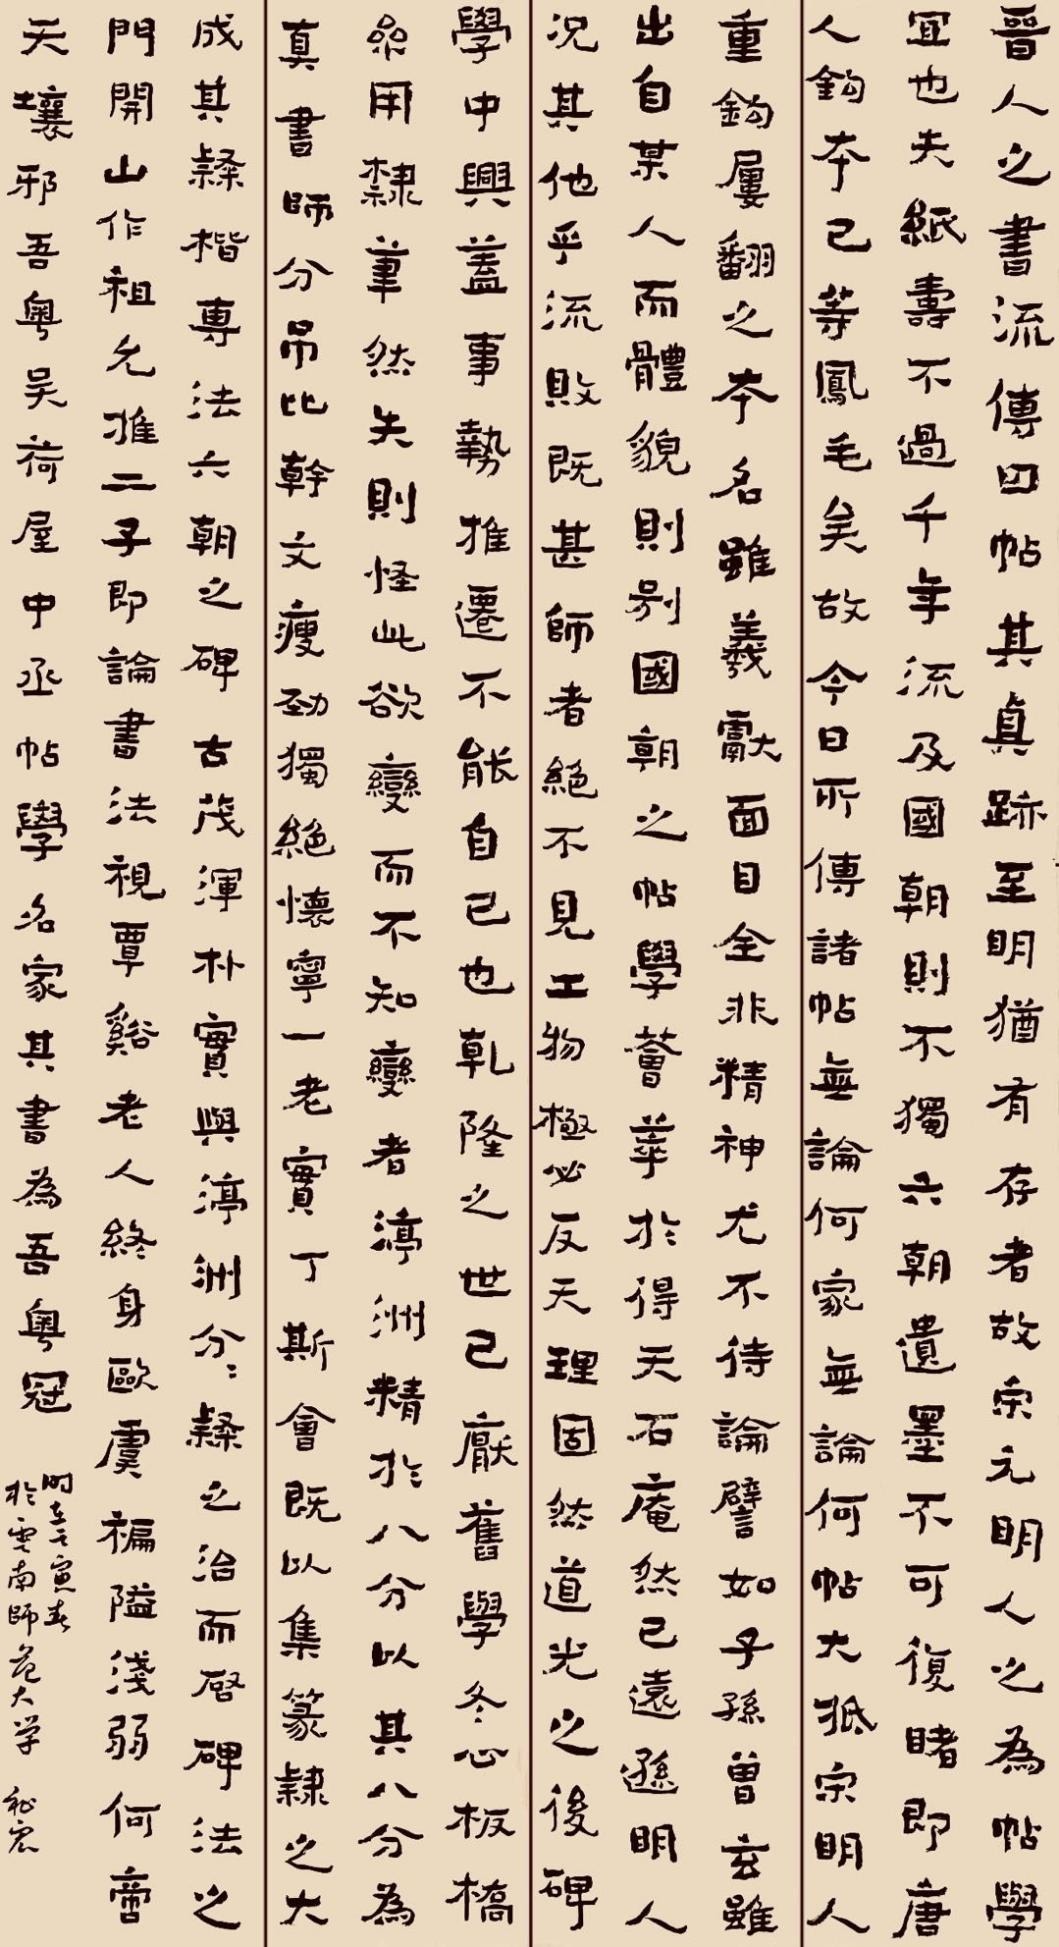 晉人之書流傳曰帖其真跡至明猶有存者故宋元明人之為帖學
宜也夫紙壽不過千年流及國朝則不獨六朝遺墨不可復睹即唐
人鈎本已等鳳毛矣故今日所傳諸帖無論何家無論何帖大抵宋明人
重鈎屢翻之本名雖羲獻面目全非精神尤不待論譬如子孫曾玄雖
出自某人而體貌則别國朝之帖學薈萃於得天石庵然已遠遜明人
況其他乎流敗既甚師者絕不見工物極必反天理固然道光之後碑
學中興蓋事勢推遷不能自已也乾隆之世已厭舊學冬心板橋
參用隸筆然失則怪此欲變而不知變者渟洲精於八分以其八分為
真書師分吊比幹文瘦勁獨絕懷寧一老實丁斯會既以集篆隸之大
成其隸楷專法六朝之碑古茂渾朴實與渟洲分分隸之治而啓碑法之
門開山作祖允推二子即論書法視覃谿老人終身歐虞褊隘淺弱何啻
天壤邪吾粵吴荷屋中丞帖學名家其書為吾粵冠
時在壬寅春
於雲南師范大学